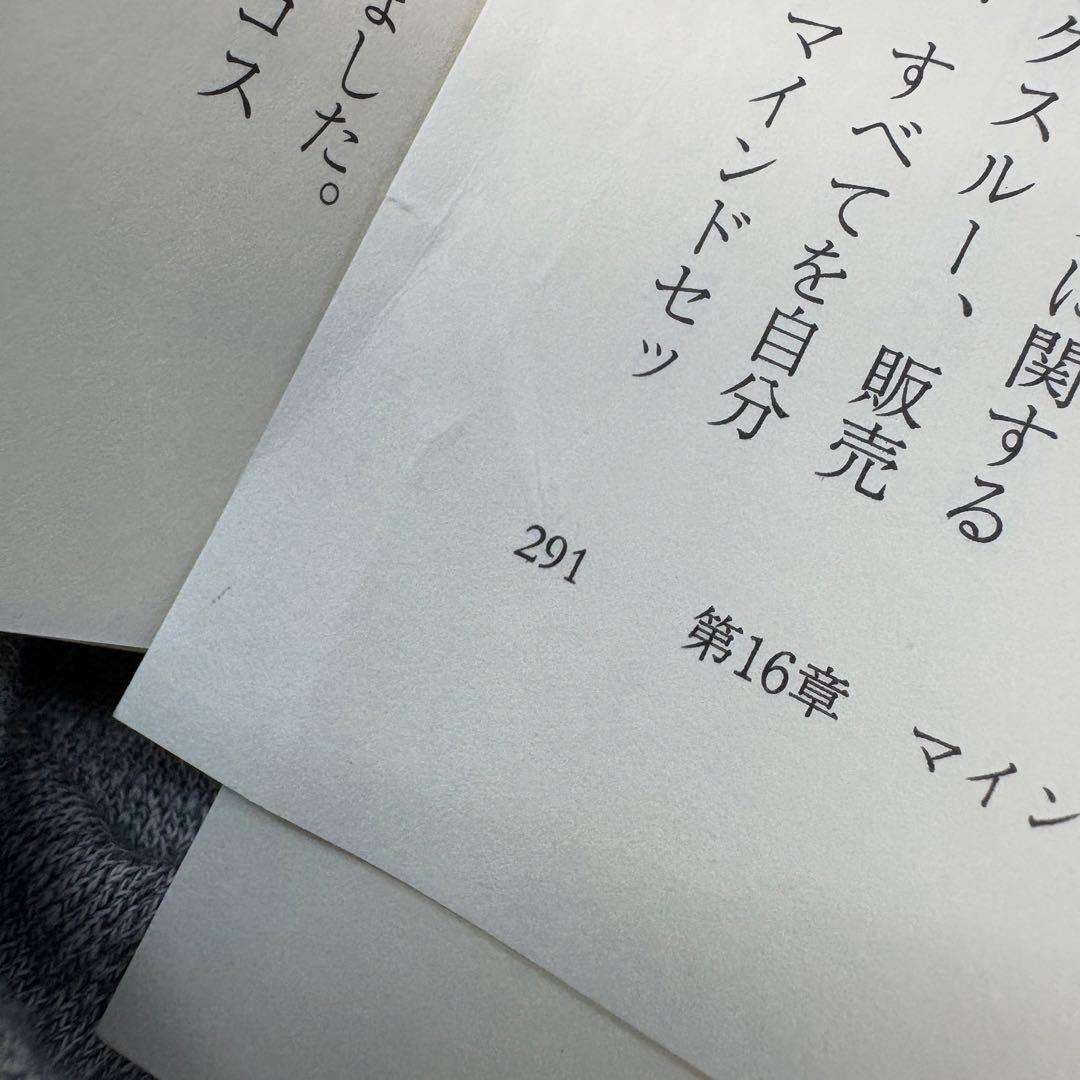 関する
クスルー、販売
すべてを自分
マインドセッ
291
第16章　マイン
した。
コス